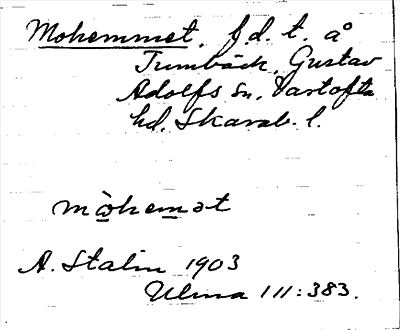 Mohemmet, f.d. t. å
Tumbäck, Gustav
Adolfs sn, Vartofta
hd. Skarab. l.
mòhemət
A. Stalin 1903
Ulma 111:383.